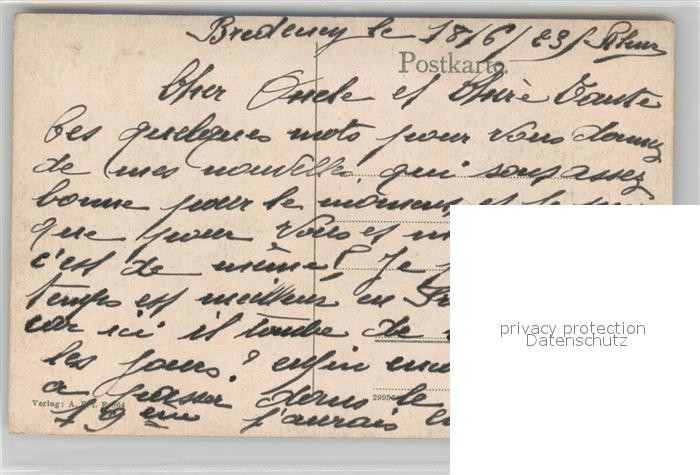 Bredeney le 18/6/23/ Ruhr
Postkarte
Cher Oncle et Chère Tante
Ces quelques mots pour vous donner
de mes nouvelles qui sont assez
bonne pour le moment et
que pour vous et
c'est de même ? Je
temps est meilleur en
car ici il tombe de
les jours ? enfin
a passer dans le
19 ème j'aurais
Verlag: A.
privacy protection
Datenschutz